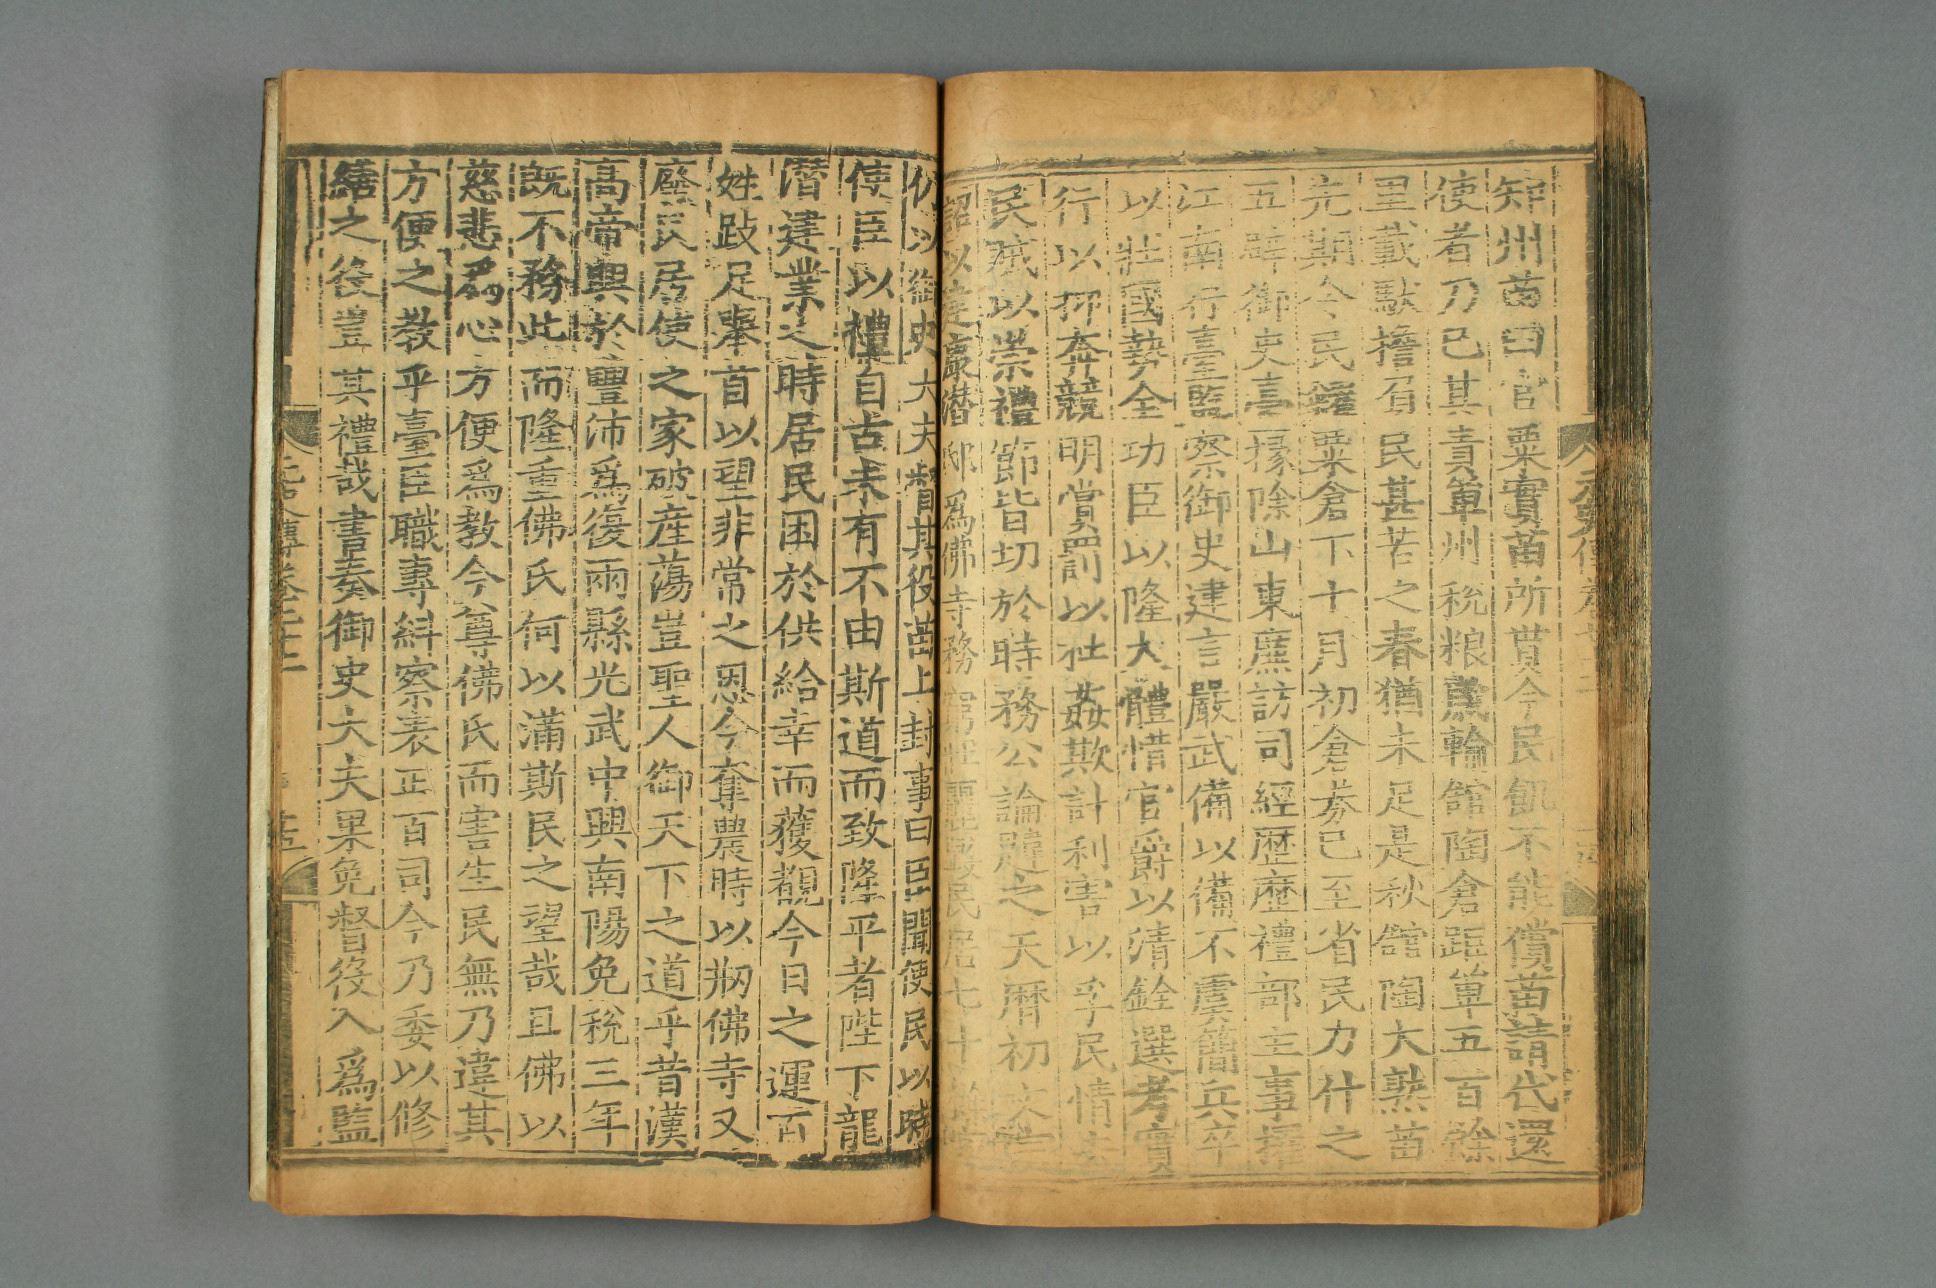 知州苗曰官粟實苗所貰今民飢不能償苗請代還
使者乃已其責單州稅粮歲輸館陶倉距單五百餘
里載馱擔負民甚苦之春猶未足是秋館陶大熟苗
先期令民糴粟倉下十月初倉券已至省民力什之
五辟御史臺掾除山東廉訪司經歷歷禮部主事擢
江南行臺監察御史建言嚴武備以備不虞簡兵卒
以壯國勢全功臣以隆大體惜官爵以清銓選考實
行以抑奔競明賞罰以杜姦欺計利害以孚民情去
民賊以崇禮節皆切於時務公論韙之天曆初文宗
詔以建康潛邸為佛寺務窮壯麗毀民居七十餘
仍以御史大夫督其役苗上封事曰臣聞使民以時
使臣以禮自古未有不由斯道而致隆平者陛下龍
潛建業之時居民困於供給幸而獲覩今日之運百
姓跂足舉首以望非常之恩今奪農時以刱佛寺又
廢民居使之家破產蕩豈聖人御天下之道乎昔漢
高帝興於豐沛爲復兩縣光武中興南陽免稅三年
旣不務此而隆重佛氏何以滿斯民之望哉且佛以
慈悲爲心方便爲教今尊佛氏而害生民無乃違其
方便之教乎臺臣職專糾察表正百司今乃委以修
繕之役豈其禮哉書奏御史大夫果免督役入爲監